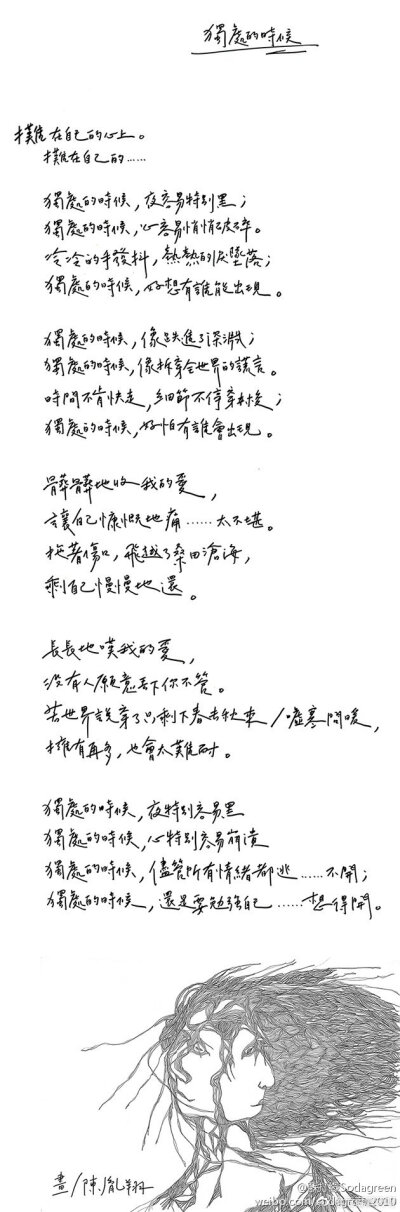 獨處的時候
攤在自己的心上。
攤在自己的……
獨處的時候，夜容易特別黑；
獨處的時候，心容易悄悄破碎。
冷冷的手發抖，熱熱的淚墜落；
獨處的時候，好想有誰能出現。
獨處的時候，像跌進了深淵；
獨處的時候，像拆穿全世界的謊言。
時間不肯快走，細節不停牽拖；
獨處的時候，好怕有誰會出現。
髒髒地收我的愛，
讓自己慷慨地痛……太不堪。
拖著傷口，飛越了桑田滄海，
剩自己慢慢地還。
長長地嘆我的愛，
沒有人願意丟下你不管。
若世界說穿了只剩下春去秋來／噓寒問暖，
擁有再多，也會太難耐。
獨處的時候，夜特別容易黑
獨處的時候，心特別容易崩潰
獨處的時候，儘管所有情緒都逃……不開；
獨處的時候，還是要勉強自己……想得開。
畫／陳胤翔
Sodagreen
weibo.com/sodagreen2010